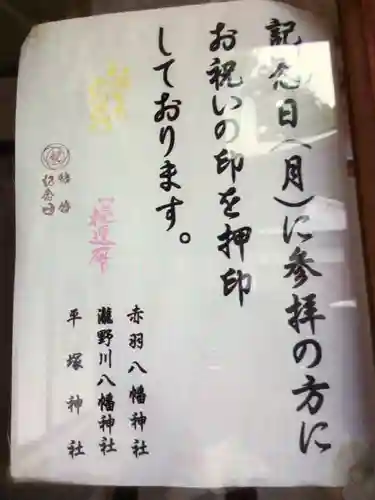 記念日(月)に参拝の方に
お祝いの印を押印
しております。
赤羽八幡神社
瀧野川八幡神社
平塚神社
結婚
記念日